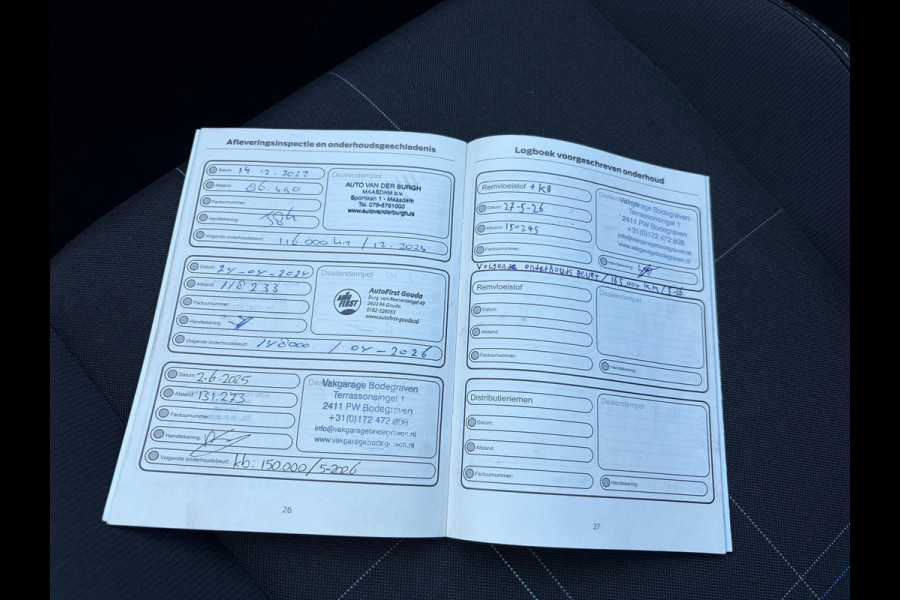 Afleveringsinspectie en onderhoudsgeschiedenis
Datum: 14.12.2022
Afstand: 86.490
Factuurnummer:
Handtekening:
Volgende onderhoudsbeurt: 116.000 km / 12-2024
Dealerstempel
AUTO VAN DER BURGH
MAASDAM b.v.
Sportlaan 1 - Maasdam
Tel. 078-6761000
www.autovanderburgh.nl
Datum: 24-04-2024
Afstand: 118233
Factuurnummer:
Handtekening:
Volgende onderhoudsbeurt: 148000 / 04-2026
Dealerstempel
AUTO FIRST
AutoFirst Gouda
Burg. van Reenensingel 49
2803 PA Gouda
0182-528053
www.autofirst-gouda.nl
Datum: 2-6-2025
Afstand: 131.273
Factuurnummer:
Handtekening:
Volgende onderhoudsbeurt: kb: 150.000/5-2026
Vakgarage Bodegraven
Terrassonsingel 1
2411 PW Bodegraven
+31(0)172 472 808
info@vakgaragebodegraven.nl
www.vakgaragebodegraven.nl
26
Logboek voorgeschreven onderhoud
Remvloeistof + KB
Datum: 27-5-26
Afstand: 150245
Factuurnummer:
Vakgarage Bodegraven
Terrassonsingel 1
2411 PW Bodegraven
+31(0)172 472 808
info@vakgaragebodegraven.nl
www.vakgaragebodegraven.nl
Handtekening:
Volgende onderhouds beurt / 165.000 km / 5-28
Remvloeistof
Datum:
Afstand:
Factuurnummer:
Dealerstempel
Handtekening:
Distributieriemen
Datum:
Afstand:
Factuurnummer:
Dealerstempel
Handtekening:
27